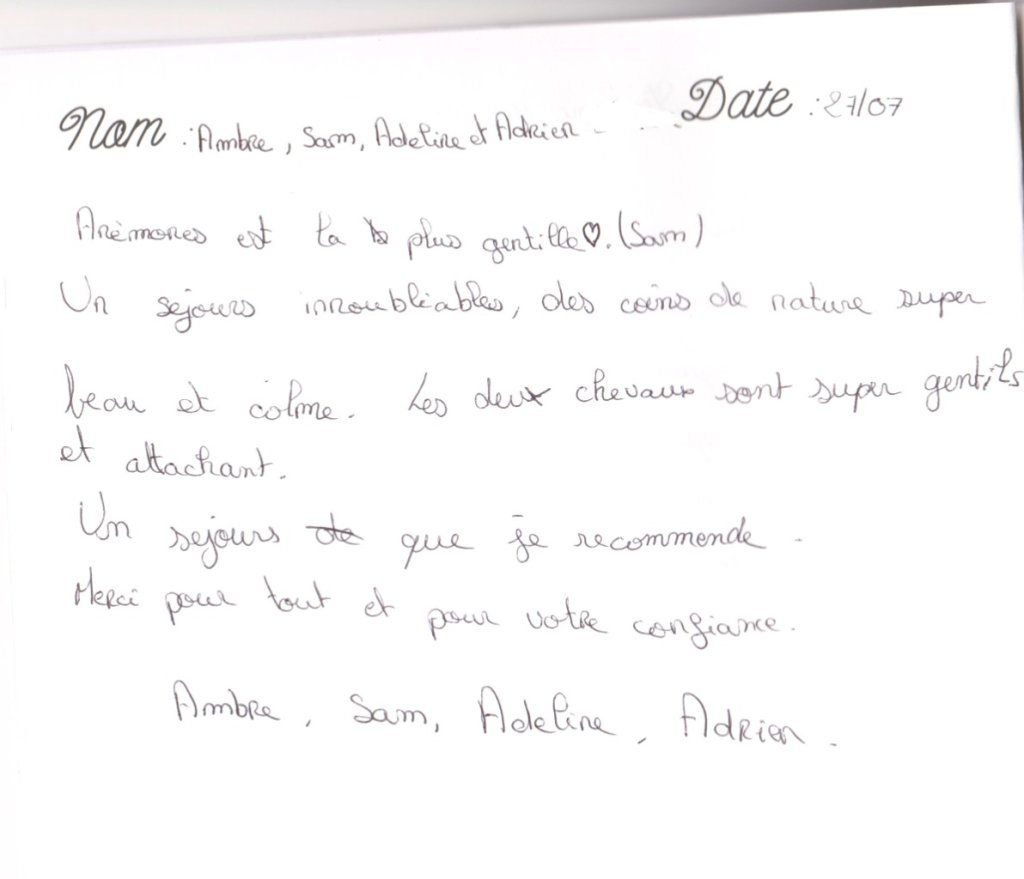 Nom : Ambre, Sam, Adeline et Adrien Date : 27/07
Anémones est la plus gentille♡. (Sam)
Un sejours innoubliables, des coins de nature super
beau et calme. Les deux chevaux sont super gentils
et attachant.
Un sejours de que je recommende.
Merci pour tout et pour votre confiance.
Ambre, Sam, Adeline, Adrien.